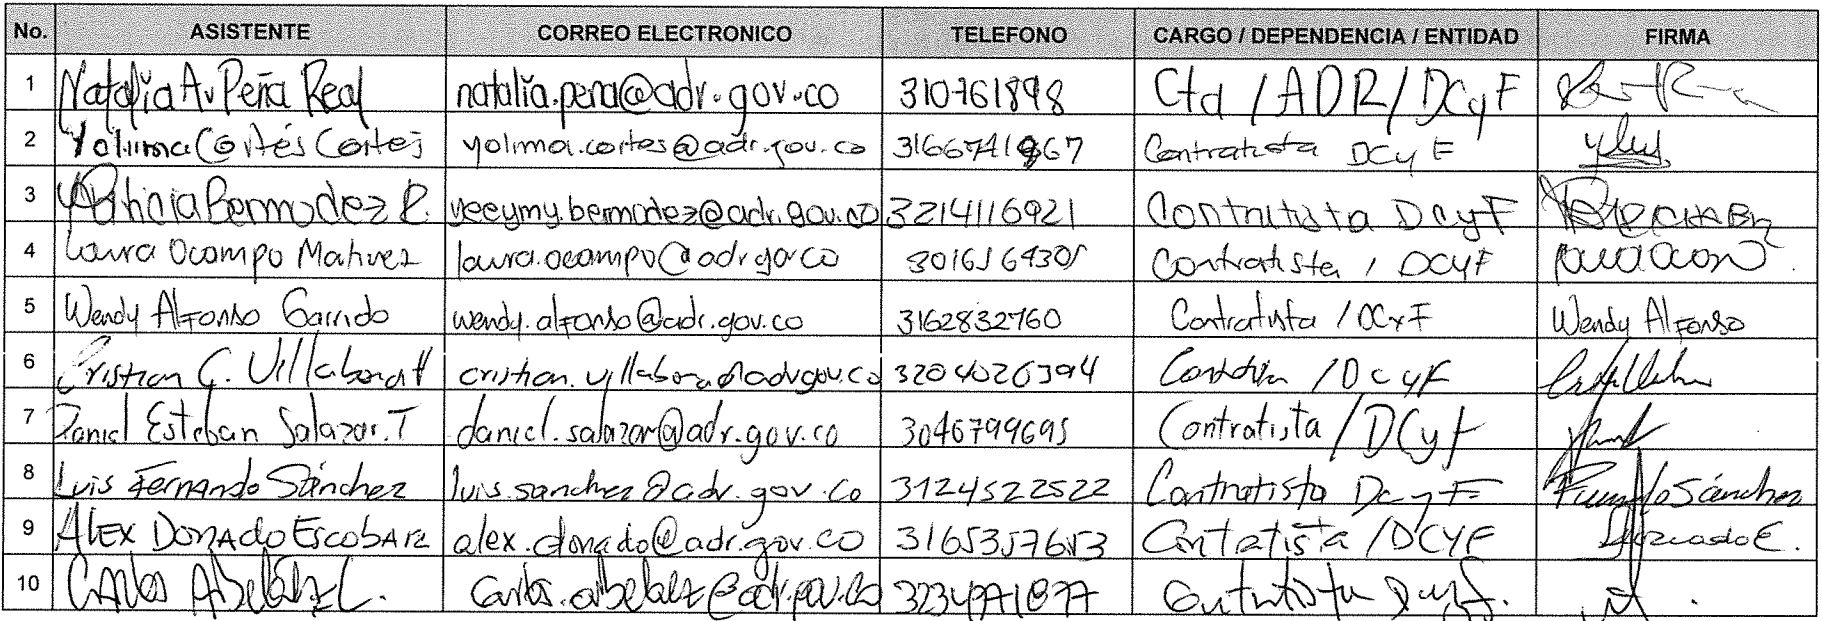 No. ASISTENTE CORREO ELECTRONICO TELEFONO CARGO / DEPENDENCIA / ENTIDAD FIRMA
1 Natalia A. Peña Real natalia.pena@adr.gov.co 310761898 Ctd / ADR / DCyF
2 Yolima Cortés Cortes yolima.cortes@adr.gov.co Contratista DCyF
3 Y Patricia Bermudez R. yeeymy.bermudez@adr.gov.co 3214116921 Contratista DCyF
4 Laura Ocampo Matinez laura.ocampo@adr.gov.co Contratista / DCyF
5 Wendy Alfonso Garrido wendy.alfonso@adr.gov.co 3162832760 Contratista / DCyF Wendy Alfonso
6 Cristian C. cristian. 3204026394 / DCyF
7 Daniel Esteban Salazar. T daniel.salazar@adr.gov.co 3046799695 Contratista / DCyF
8 Luis Fernando Sánchez luis.sanchez@adr.gov.co 3124522522 Contratista DcyF Fernando Sánchez
9 Alex Donado Escobar alex.donado@adr.gov.co 3165357653 Contratista / DCYF Donado E.
10 Carlos Arbeláez C. carlos.arbelaez@adr.gov.co